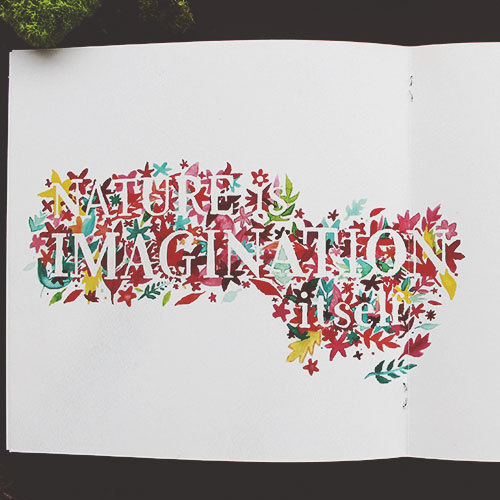 NATURE is
IMAGINATION
itself